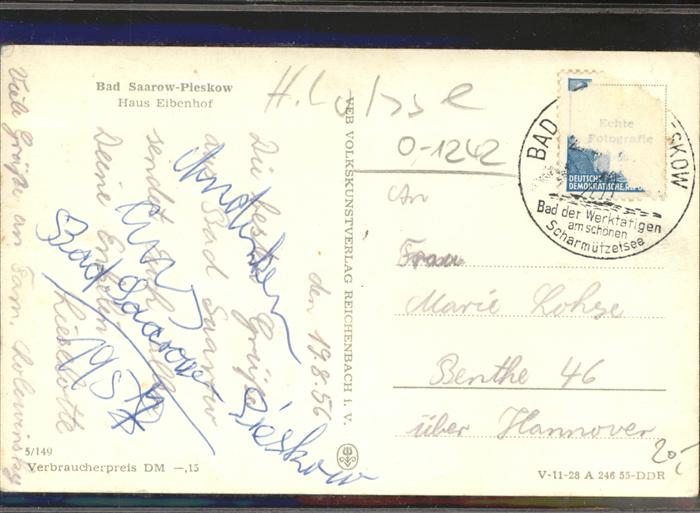 Bad Saarow-Pieskow
Haus Eibenhof
den 19.8.56
Die besten Grüße
aus Bad Saarow
sendet
Deine Enkelin
Lieselotte
Viele Grüße an Fam.
Andenken
Bad Saarow
Pieskow
1957
5/149
Verbraucherpreis DM —,15
VEB VOLKSKUNSTVERLAG REICHENBACH i. V.
0-1242
An
Frau
Marie Lohse
Benthe 46
über Hannover
20,-
V-11-28 A 246 55-DDR
Echte
Fotografie
DEUTSCHE
DEMOKRATISCHE REPU
BAD
SKOW
Bad der Werktätigen
am schönen
Scharmützelsee